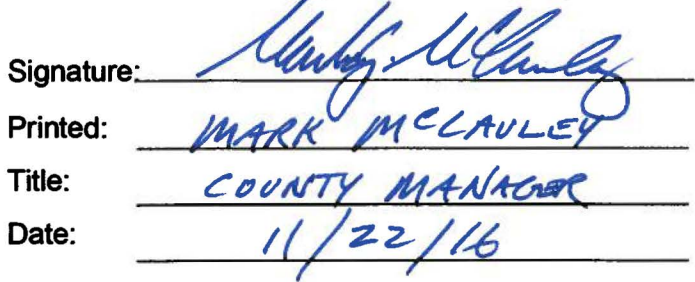 Signature:
Printed: MARK MCCAULEY
Title: COUNTY MANAGER
Date: 11/22/16